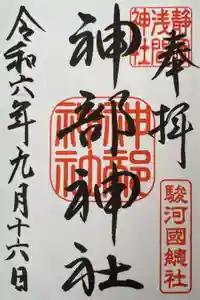 奉拝
静岡浅間神社
駿河國總社
神部神社
神部神社
令和六年九月十六日